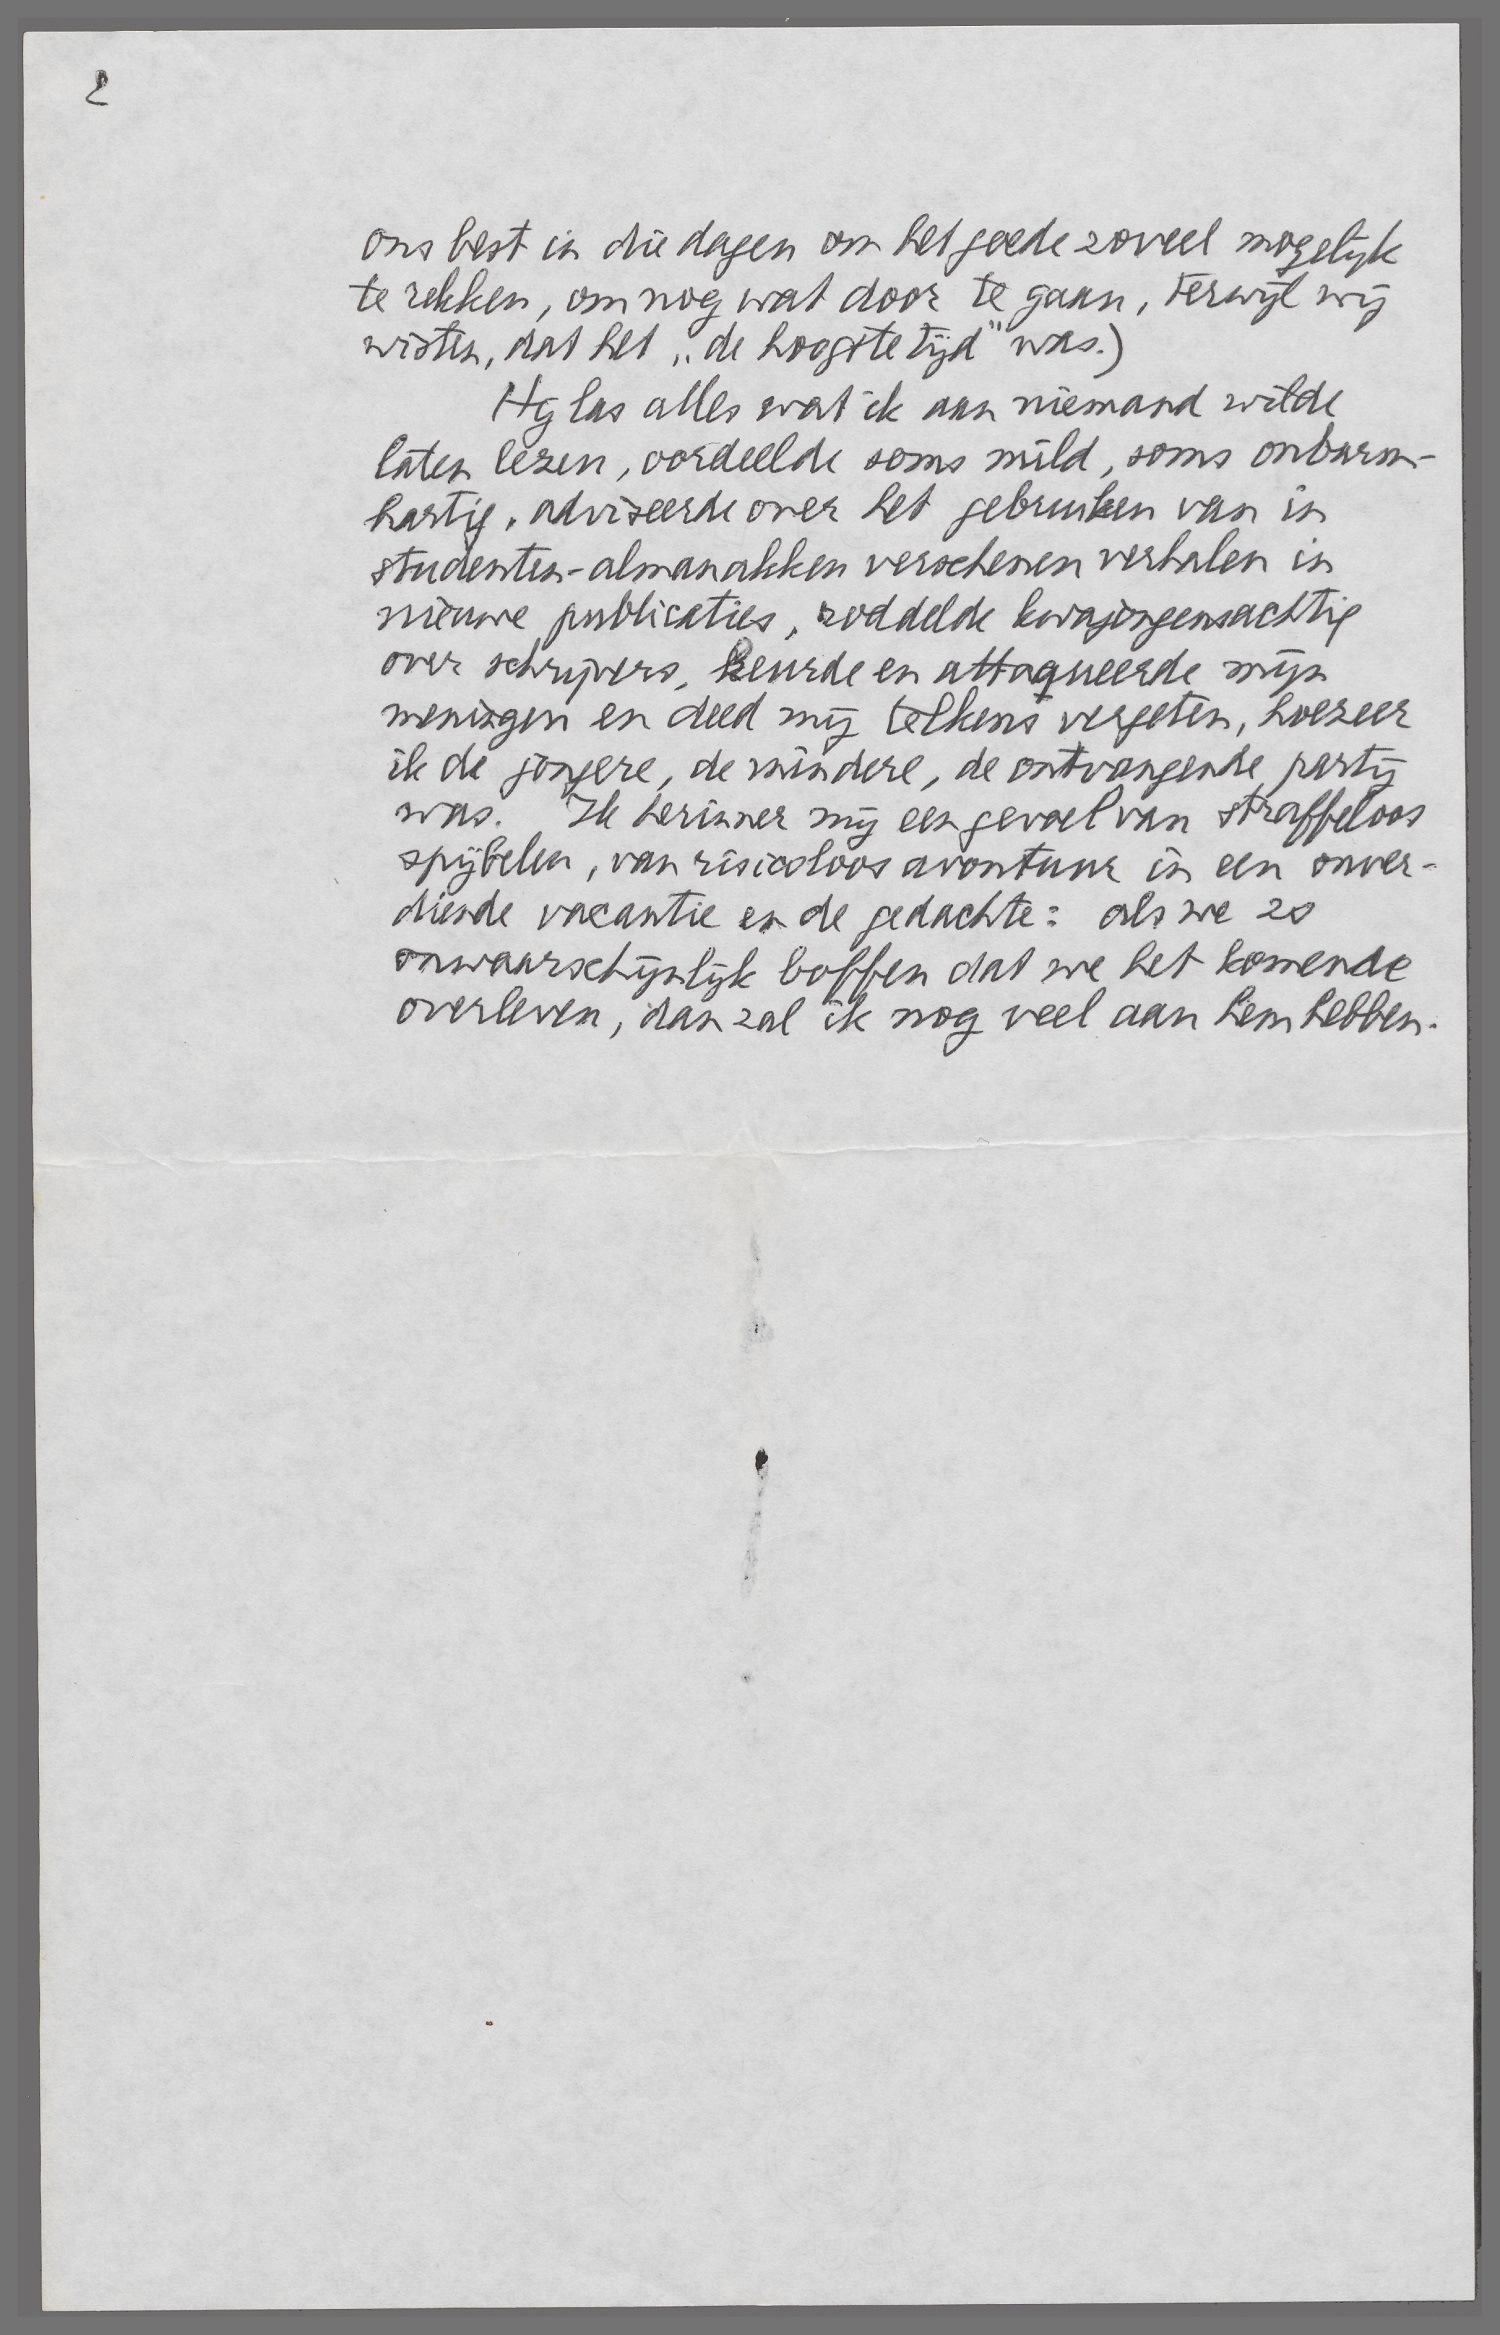 2
ons best in die dagen om het goede zoveel mogelijk
te rekken, om nog wat door te gaan, terwijl wij
wisten, dat het „de hoogste tijd" was.)
Hij las alles wat ik aan niemand wilde
laten lezen, oordeelde soms mild, soms onbarm-
hartig, adviseerde over het gebruiken van in
studenten-almanakken verschenen verhalen in
nieuwe publicaties, roddelde kwajongensachtig
over schrijvers, keurde en attaqueerde mijn
meningen en deed mij telkens vergeten, hoezeer
ik de jongere, de mindere, de ontvangende partij
was. Ik herinner mij een gevoel van straffeloos
spijbelen, van risicoloos avontuur in een onver-
diende vacantie en de gedachte: als we zo
onwaarschijnlijk boffen dat we het komende
overleven, dan zal ik nog veel aan hem hebben.